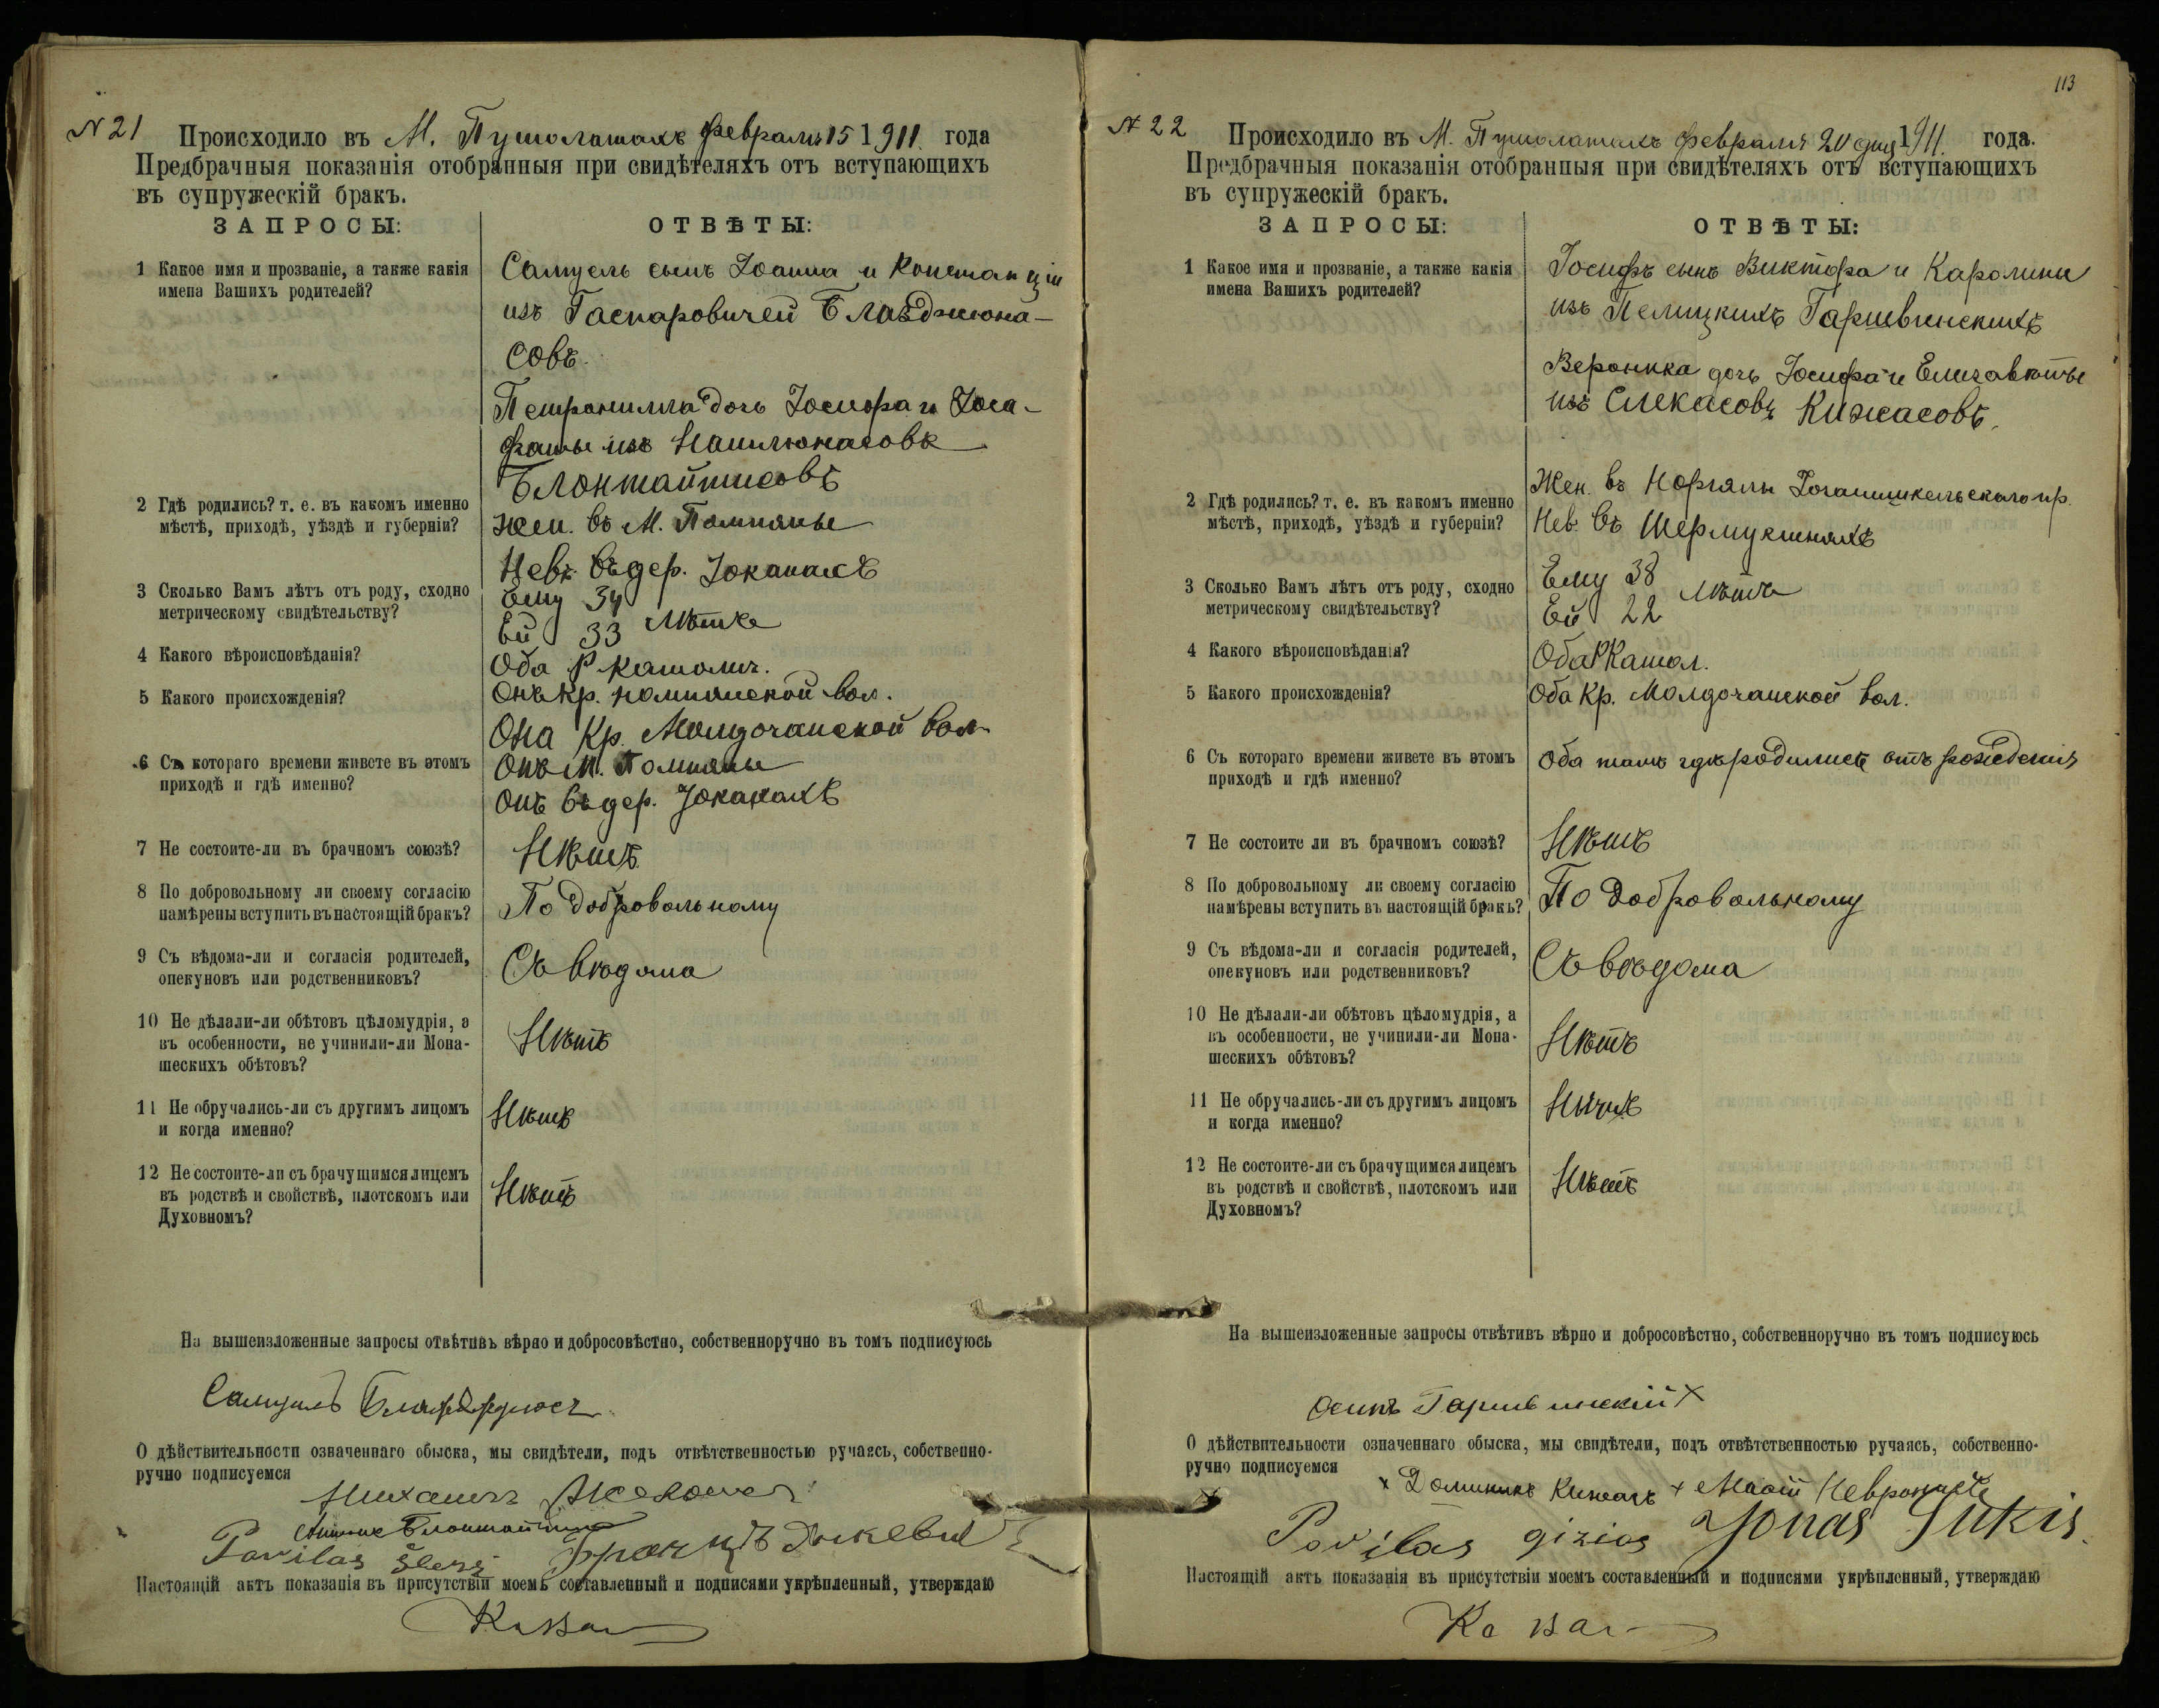 N 21
Происходило въ М. Пушолатахъ Февраля 15 1911 года
Предбрачныя показанія отобранныя при свидѣтеляхъ отъ вступающихъ
въ супружескій бракъ.
ЗАПРОСЫ:
ОТВѢТЫ:
1 Какое имя и прозваніе, а также какія
имена Вашихъ родителей?
Самуель сынъ Іоанна и Констанціи
изъ Гаспаровичей
совъ.
Петронилла дочь Іосифа и Іоса-
фаты изъ
Блонтайтисовъ
2 Гдѣ родились? т. е. въ какомъ именно
мѣстѣ, приходѣ, уѣздѣ и губерніи?
Жен. въ М. Помпяны
Нев. въ дер. Іоканахъ
3 Сколько Вамъ лѣтъ отъ роду, сходно
метрическому свидѣтельству?
Ему 34
Ей 33 Лѣтъ
4 Какого вѣроисповѣданія?
Оба Р Католич.
5 Какого происхожденія?
Онъ кр. помпянской вол.
Она Кр. Молдочанской вол.
6 Съ котораго времени живете въ этомъ
приходѣ и гдѣ именно?
Онъ М. Помпяны
Онъ въ дер. Іоканахъ
7 Не состоите-ли въ брачномъ союзѣ?
Нѣтъ
8 По добровольному ли своему согласію
намѣрены вступить въ настоящій бракъ?
По добровольному
9 Съ вѣдома-ли и согласія родителей,
опекуновъ или родственниковъ?
Съ вѣдома
10 Не дѣлали-ли обѣтовъ цѣломудрія, а
въ особенности, не учинили-ли Мона-
шескихъ обѣтовъ?
Нѣтъ
11 Не обручались-ли съ другимъ лицомъ
и когда именно?
Нѣтъ
12 Не состоите-ли съ брачущимся лицемъ
въ родствѣ и свойствѣ, плотскомъ или
Духовномъ?
Нѣтъ
На вышеизложенные запросы отвѣтивъ вѣрно и добросовѣстно, собственноручно въ томъ подписуюсь
Самуилъ
О дѣйствительности означеннаго обыска, мы свидѣтели, подъ отвѣтственностью ручаясь, собственно-
ручно подписуемся
Povilas
Настоящій актъ показанія въ присутствіи моемъ составленный и подписями укрѣпленный, утверждаю
113
N 22
Происходило въ М. Пушолатахъ Февраля 20 дня 1911. года.
Предбрачныя показанія отобранныя при свидѣтеляхъ отъ вступающихъ
въ супружескій бракъ.
ЗАПРОСЫ:
ОТВѢТЫ:
1 Какое имя и прозваніе, а также какія
имена Вашихъ родителей?
Іосифъ сынъ Виктора и Каролины
изъ Гаршвинскихъ
Вероника дочь Іосифа и Елисаветы
изъ Слекасовъ Кижасовъ.
2 Гдѣ родились? т. е. въ какомъ именно
мѣстѣ, приходѣ, уѣздѣ и губерніи?
Жен. въ Норгялы Іоганишкельскаго пр.
Нев. въ Шермукшняхъ
3 Сколько Вамъ лѣтъ отъ роду, сходно
метрическому свидѣтельству?
Ему 38
Ей 22 Лѣтъ
4 Какого вѣроисповѣданія?
Оба Р Катол.
5 Какого происхожденія?
Оба Кр. Молдочанской вол.
6 Съ котораго времени живете въ этомъ
приходѣ и гдѣ именно?
Оба тамъ гдѣ родились отъ рожденія
7 Не состоите ли въ брачномъ союзѣ?
Нѣтъ
8 По добровольному ли своему согласію
намѣрены вступить въ настоящій бракъ?
По добровольному
9 Съ вѣдома-ли и согласія родителей,
опекуновъ или родственниковъ?
Съ вѣдома
10 Не дѣлали-ли обѣтовъ цѣломудрія, а
въ особенности, не учинили-ли Мона-
шескихъ обѣтовъ?
Нѣтъ
11 Не обручались-ли съ другимъ лицомъ
и когда именно?
12 Не состоите-ли съ брачущимся лицемъ
въ родствѣ и свойствѣ, плотскомъ или
Духовномъ?
Нѣтъ
На вышеизложенные запросы отвѣтивъ вѣрно и добросовѣстно, собственноручно въ томъ подписуюсь
Осипъ Гаршвинскій X
О дѣйствительности означеннаго обыска, мы свидѣтели, подъ отвѣтственностью ручаясь, собственно-
ручно подписуемся
x Доминикъ Кижасъ +
Povilas gizias Jonas Jukis.
Настоящій актъ показанія въ присутствіи моемъ составленный и подписями укрѣпленный, утверждаю